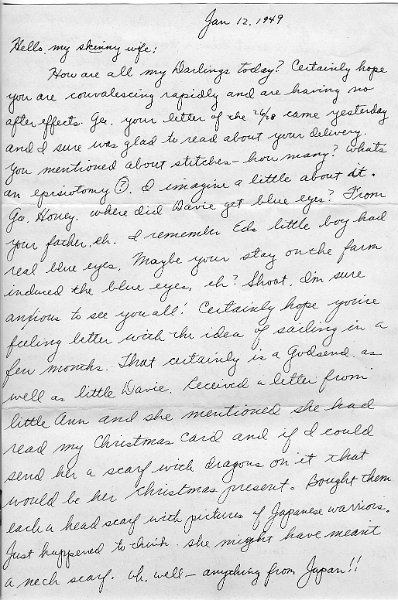 Jan 12, 1949
Hello, my skinny wife:
How are all my Darlings today? Certainly hope
you are convalescing rapidly and are having no
after effects. Ga. your letter of the 12/28 came yesterday
and I sure was glad to read about your delivery.
You mentioned about stitches – how many? What's
an episiotomy ?. I imagine a little about it.
Ga, Honey. where did Davie get blue eyes? From
your father, eh. I remember Eds little boy had
real blue eyes. Maybe your stay on the farm
induced the blue eyes, eh? Shoot, I'm sure
anxious to see you all! Certainly hope you're
feeling letter with the idea of sailing in a
few months. That certainly is a Godsend as
well as little Davie. Received a letter from
little Ann and she mentioned she had
read my Christmas Card and if I could
send her a scarf with dragons on it that
would be her Christmas present. Bought them
each a head scarf with pictures of Japanese warriors.
Just happened to think she might have meant
a neck scarf. Oh, well – anything from Japan!!